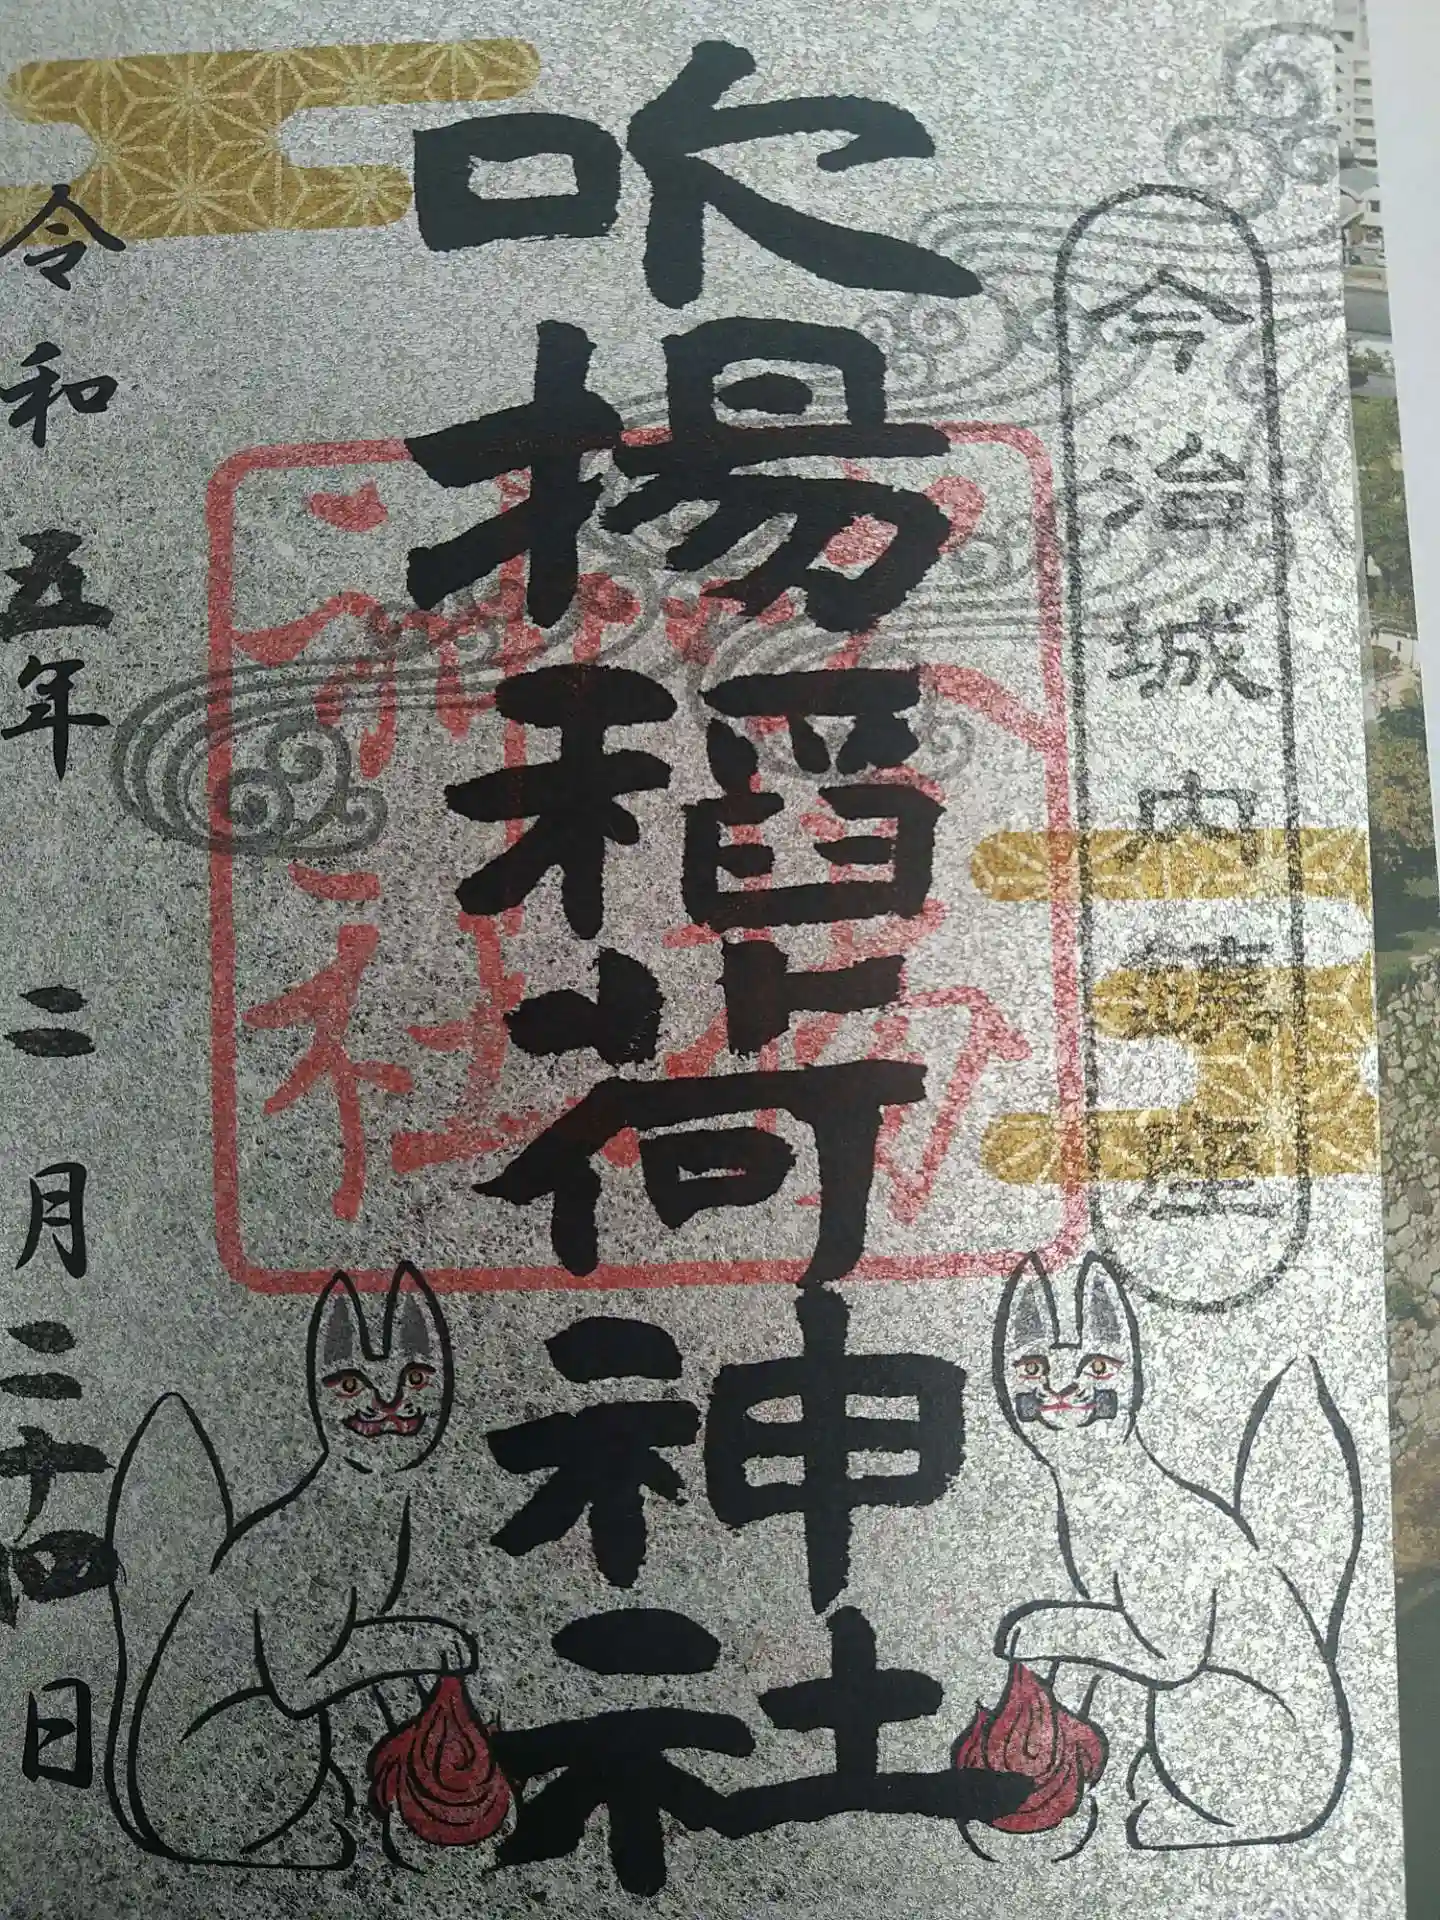 今治城内鎮座
吹揚稲荷神社
令和五年二月二十四日